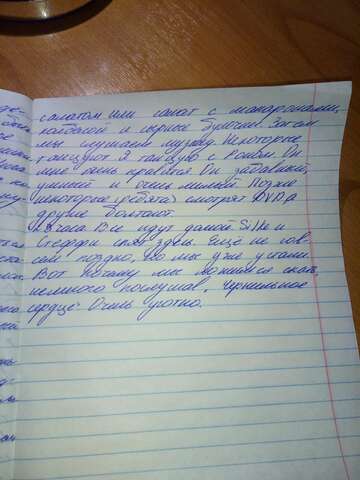 салатом или салат с макаронами,
колбасой и сырные булочки. Затем
мы слушаем музыку. Некоторые
танцуют Я танцую с Робби. Он
мне очень нравится Он забавный,
умный и очень милый. Позже
некоторые (ребята) смотрят DVD, а
другие болтают.
Все идут домой Silke и
спят здесь. Ещё не сов-
сем поздно, но мы уже устали
Вот почему мы ложимся спать,
немного послушав, "Чернильное
сердце" Очень уютно.